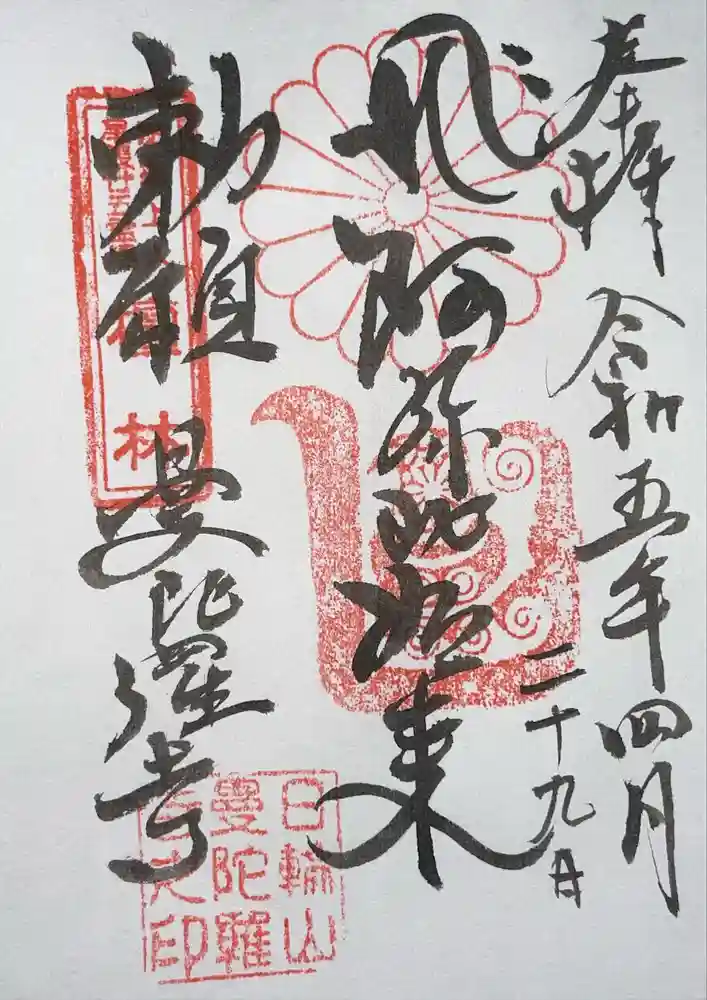 奉拝 令和五年四月
二十九日
阿弥陀如来
勅願 曼陀羅寺
日輪山
曼陀羅
印